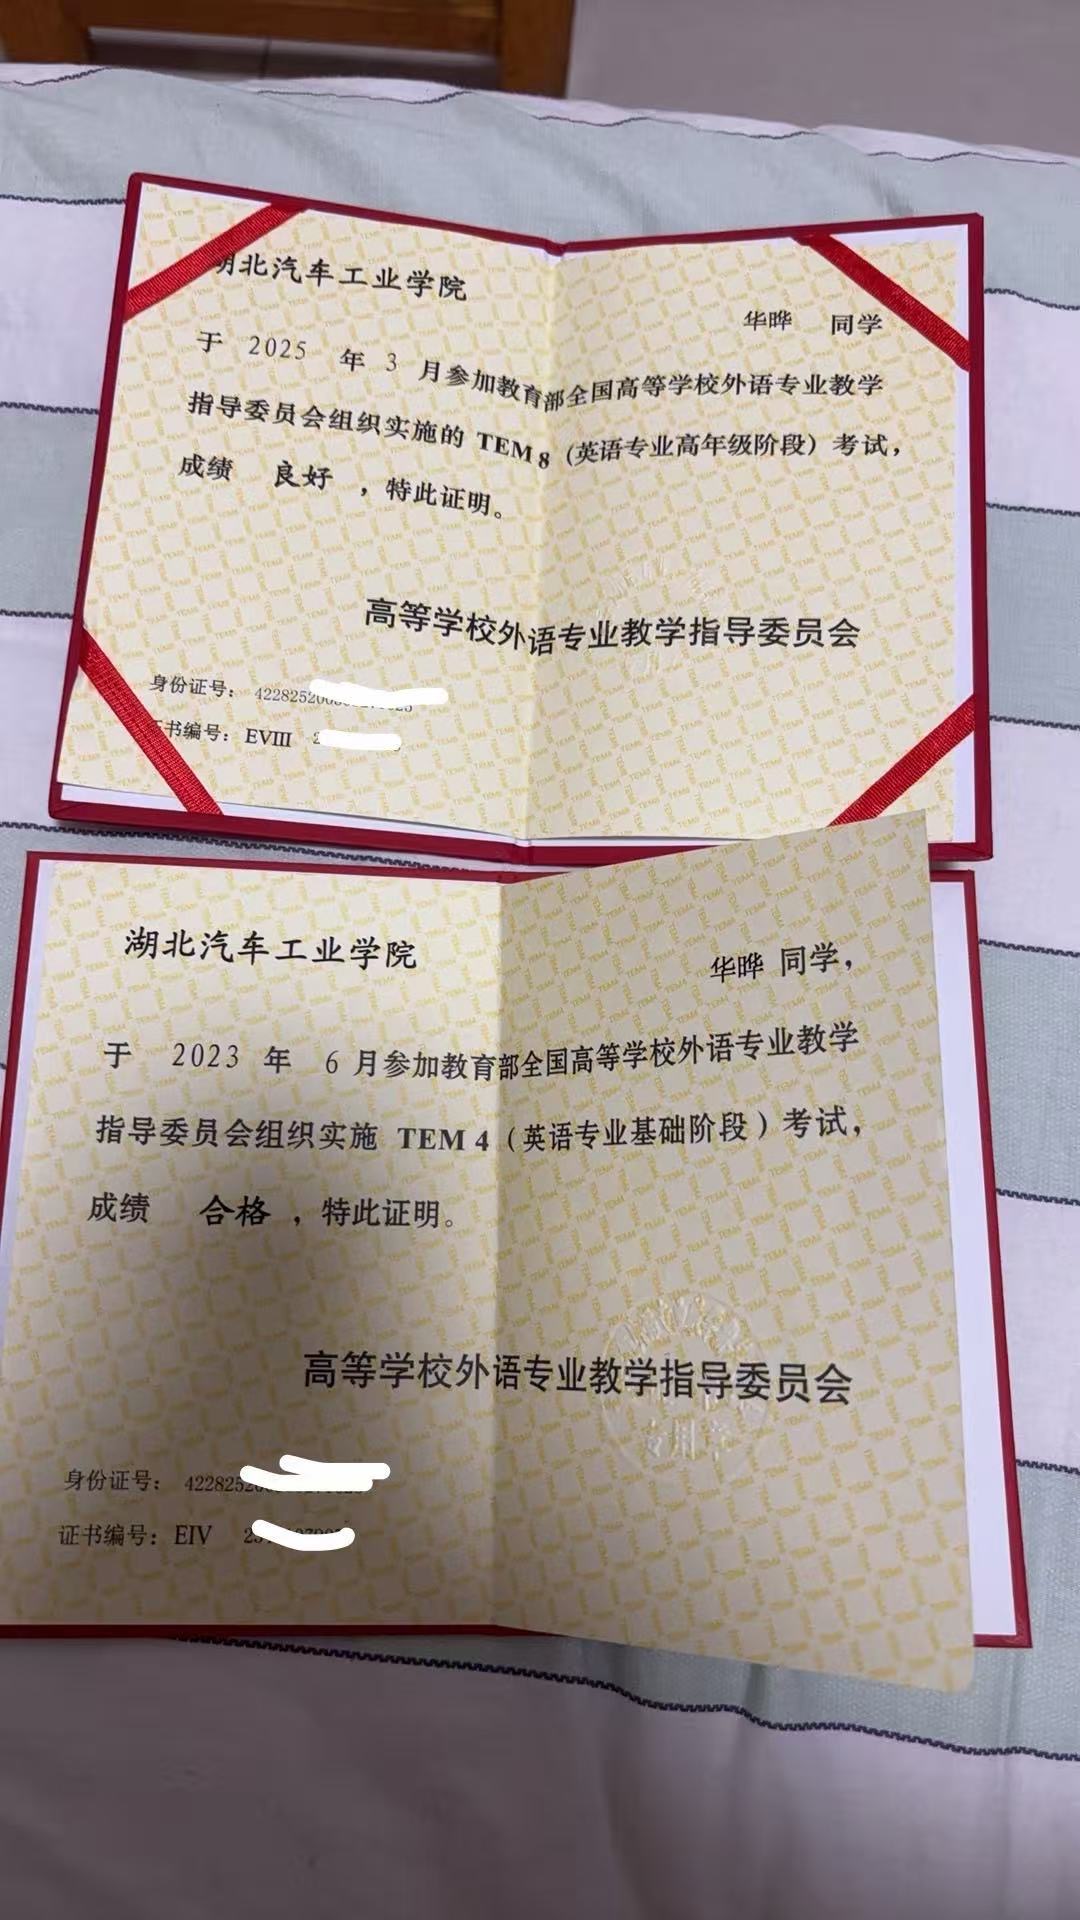 湖北汽车工业学院
华晔 同学
于 2025 年 3 月参加教育部全国高等学校外语专业教学
指导委员会组织实施的 TEM 8 (英语专业高年级阶段) 考试，
成绩 良好 ，特此证明。
高等学校外语专业教学指导委员会
身份证号： 422825200
证书编号： EVIII 2
湖北汽车工业学院
华晔 同学，
于 2023 年 6 月参加教育部全国高等学校外语专业教学
指导委员会组织实施 TEM 4 (英语专业基础阶段) 考试，
成绩 合格 ，特此证明。
高等学校外语专业教学指导委员会
专用章
身份证号： 4228252
证书编号： EIV 2